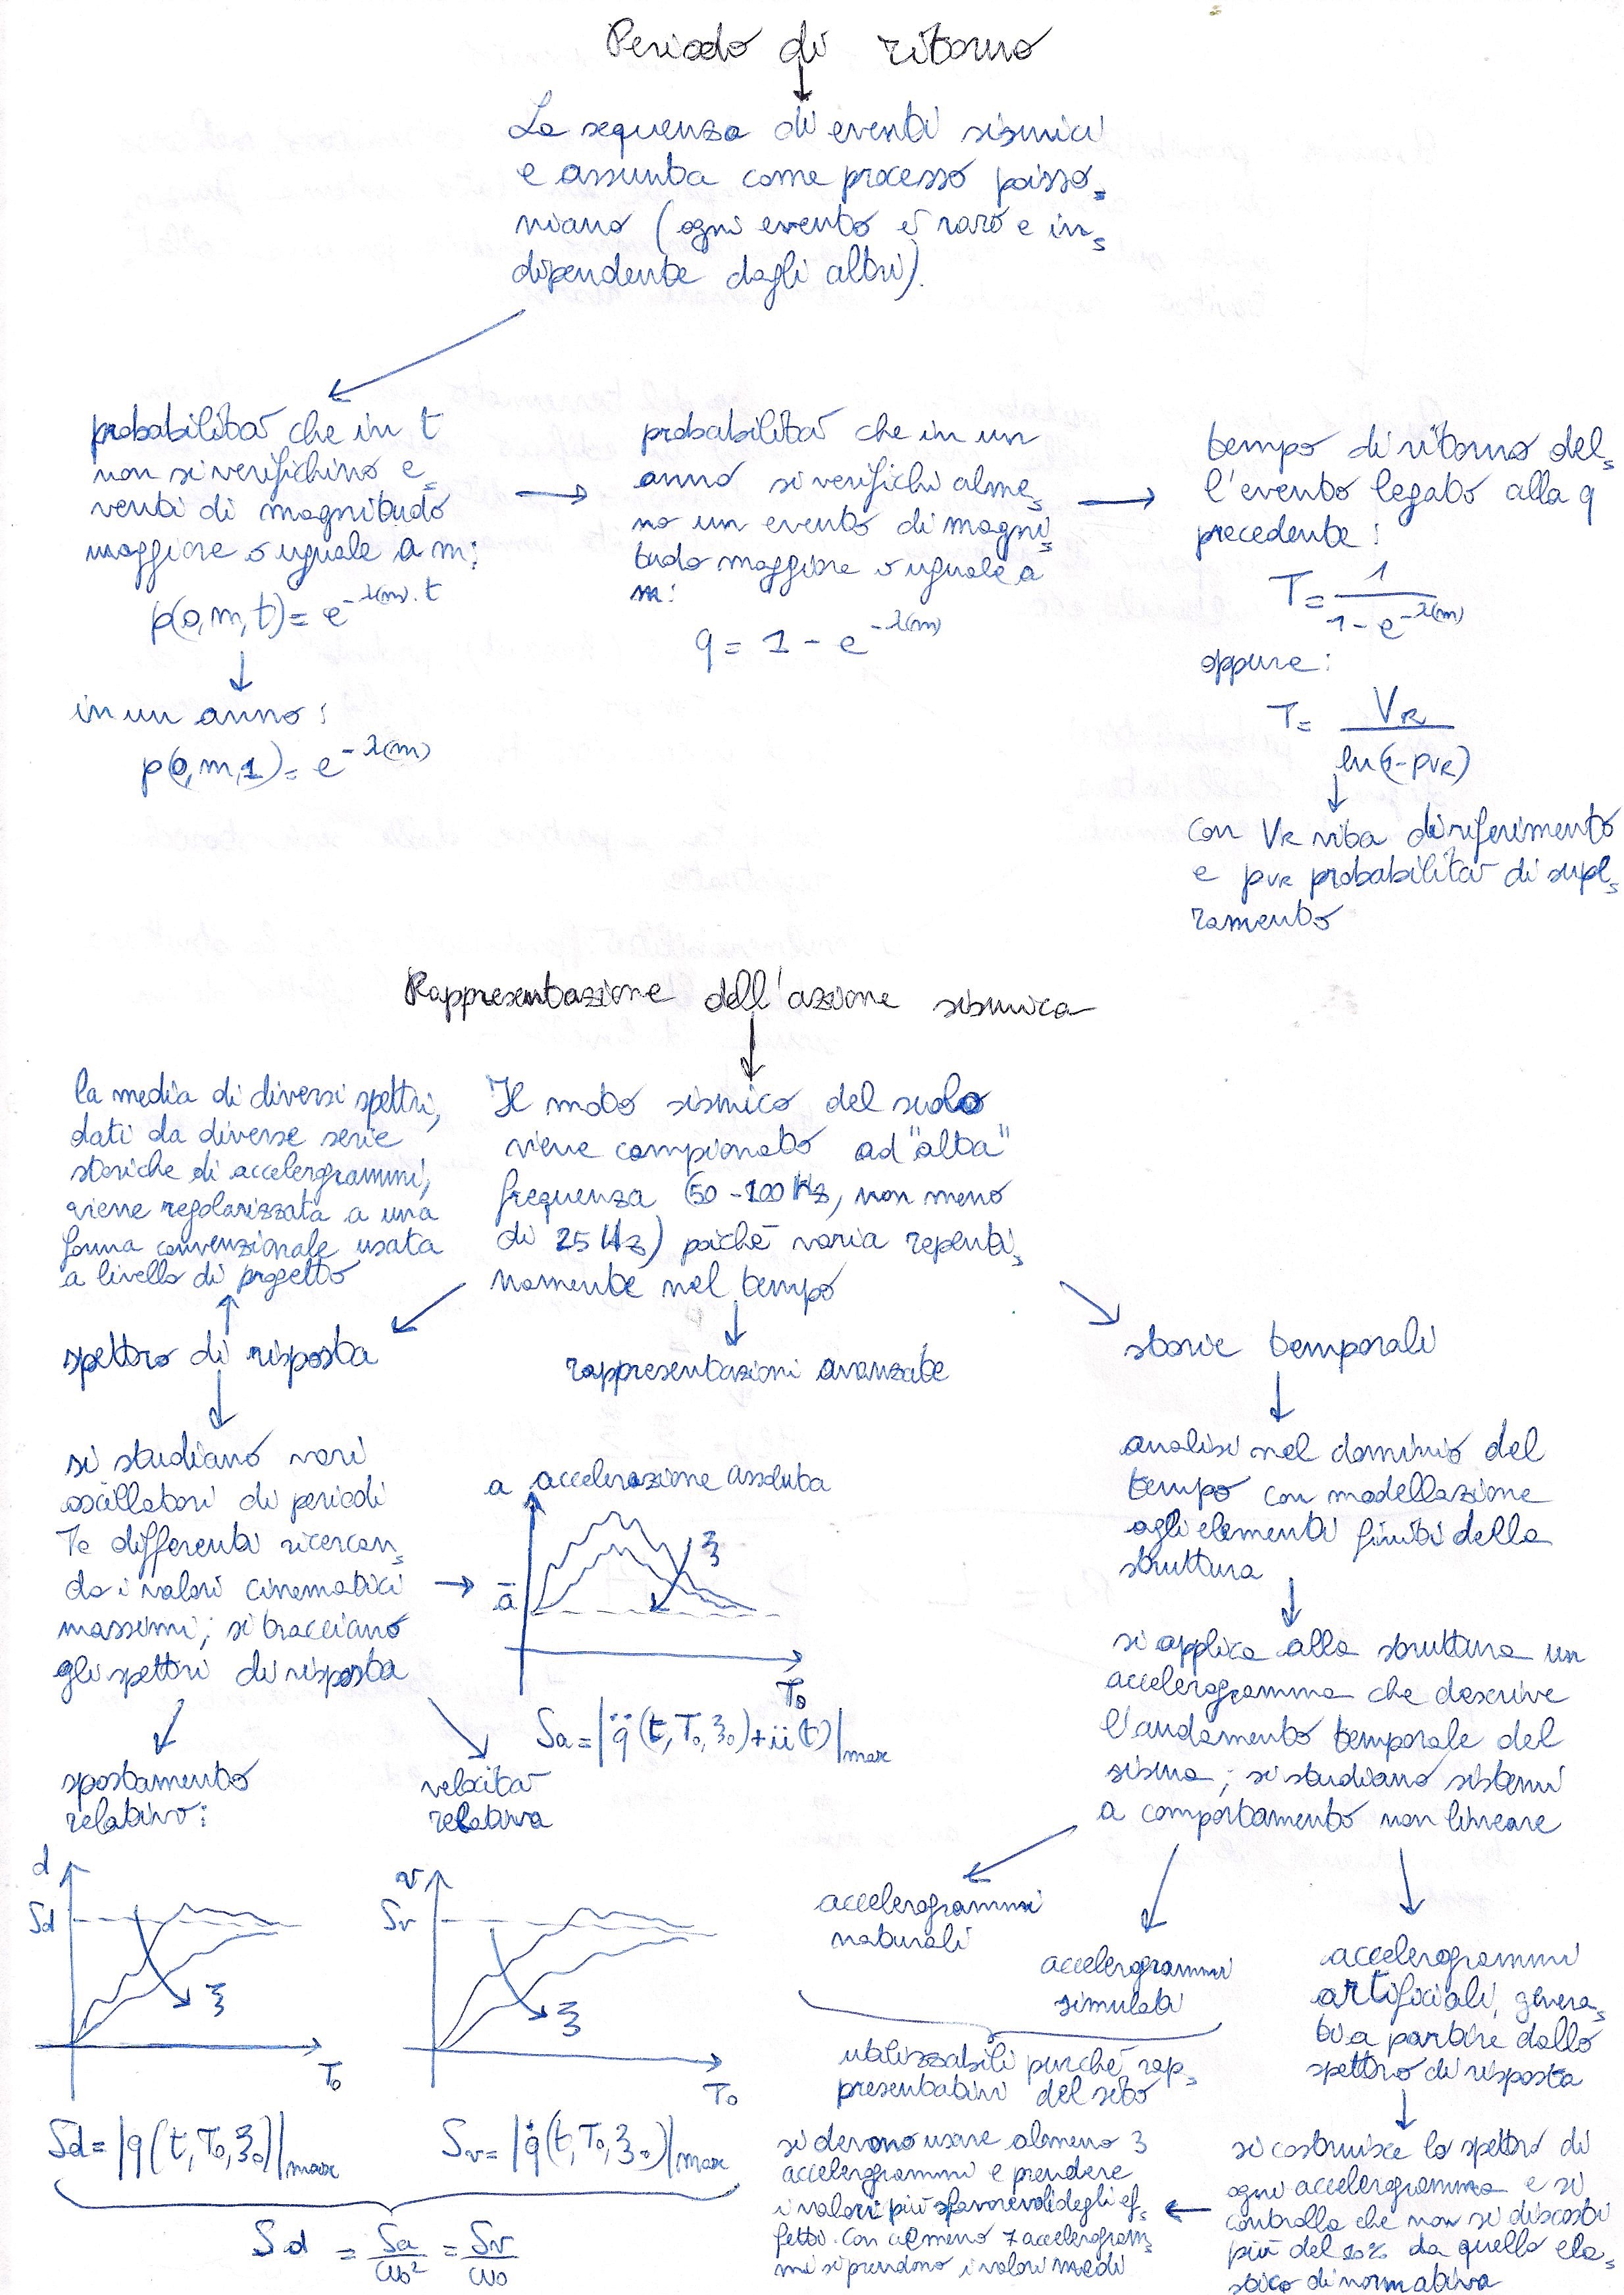 Periodo di ritorno
La sequenza di eventi sismici
e assunta come processo poisso=
niano (ogni evento è raro e in=
dipendente dagli altri).
probabilità che in t
non si verifichino e=
venti di magnitudo
maggiore o uguale a m:
p(0,m,t)= e^-λ(m)·t
in un anno:
p(0,m,1)= e^-λ(m)
probabilità che in un
anno si verifichi alme=
no un evento di magni=
tudo maggiore o uguale a
m:
q = 1 - e^-λ(m)
tempo di ritorno del=
l'evento legato alla q
precedente:
T= 1/(1-e^-λ(m))
oppure:
T= VR/ln(1-pVR)
con VR vita di riferimento
e pVR probabilità di supe=
ramento
Rappresentazione dell'azione sismica
la media di diversi spettri,
dati da diverse serie
storiche di accelergrammi,
viene regolarizzata a una
forma convenzionale usata
a livello di progetto
Il moto sismico del suolo
viene campionato ad "alta"
frequenza (50-100 Hz, non meno
di 25 Hz) poiché varia repenti=
namente nel tempo
spettro di risposta
rappresentazioni avanzate
storie temporali
si studiano vari
oscillatori di periodi
To differenti ricercan=
do i valori cinematici
massimi; si tracciano
gli spettri di risposta
a accelerazione assoluta
ξ
ā
T0
Sa=|q̈(t,T0,ξ0)+ü(t)|max
analisi nel dominio del
tempo con modellazione
agli elementi finiti della
struttura
si applica alla struttura un
accelerogramma che descrive
l'andamento temporale del
sisma; si studiano sistemi
a comportamento non lineare
spostamento
relativo:
velocità
relativa
d
Sd
ξ
T0
v
Sv
ξ
T0
Sd=|q(t,T0,ξ0)|max
Sv=|q̇(t,T0,ξ0)|max
Sd = Sa/ω0² = Sv/ω0
accelerogrammi
naturali
accelerogrammi
simulati
utilizzabili purché rap=
presentativi del sito
accelerogrammi
artificiali, genera=
ti a partire dallo
spettro di risposta
si costruisce lo spettro di
ogni accelerogramma e si
controlla che non si discosti
più del 10% da quello ela=
stico di normativa
si devono usare almeno 3
accelerogrammi e prendere
i valori più sfavorevoli degli ef=
fetti. Con almeno 7 accelerogram=
mi si prendono i valori medi